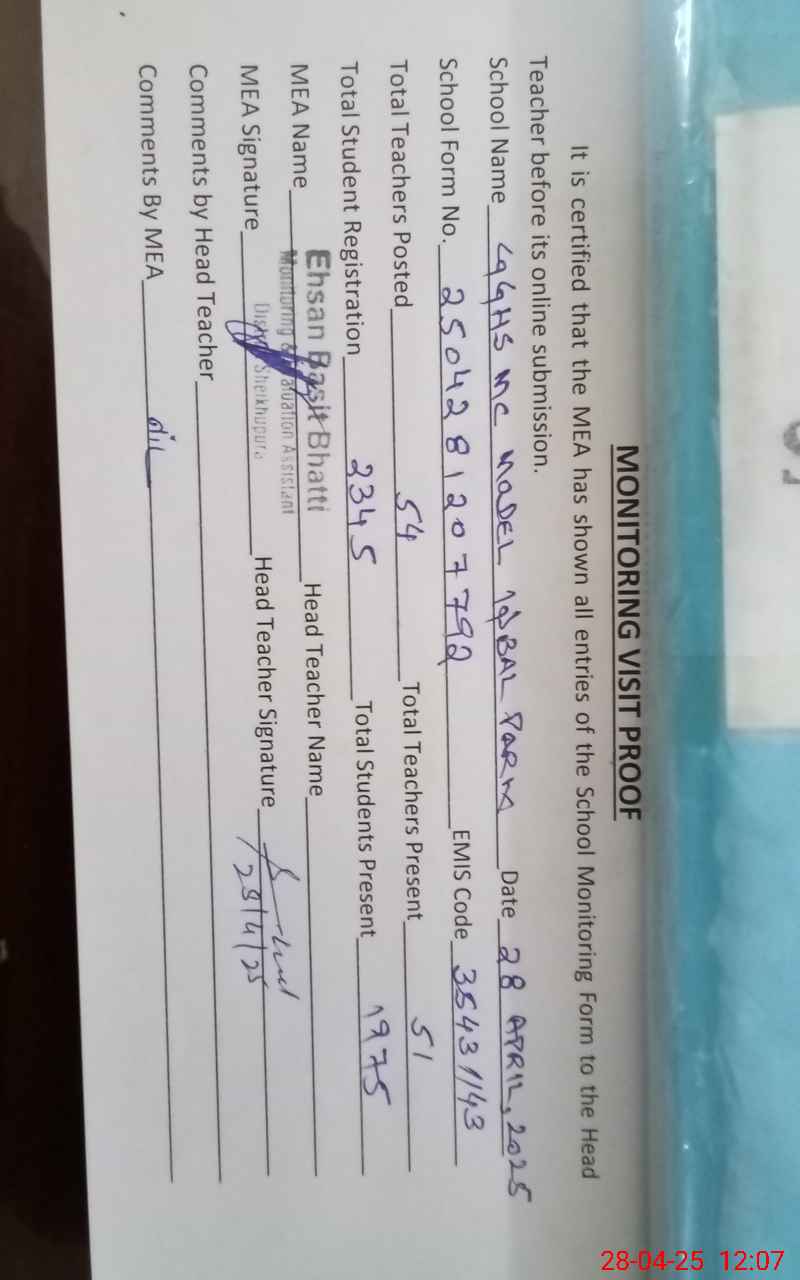 MONITORING VISIT PROOF
It is certified that the MEA has shown all entries of the School Monitoring Form to the Head
Teacher before its online submission.
School Name GGHS MC MODEL IQBAL PARK Date 28 APRIL, 2025
School Form No. 2504281207792 EMIS Code 35431143
Total Teachers Posted 54 Total Teachers Present 51
Total Student Registration 2345 Total Students Present 1975
MEA Name Ehsan Basit Bhatti Head Teacher Name
Monitoring & Evaluation Assistant
MEA Signature District Sheikhupura Head Teacher Signature
28/4/25
Comments by Head Teacher
Comments By MEA
28-04-25 12:07